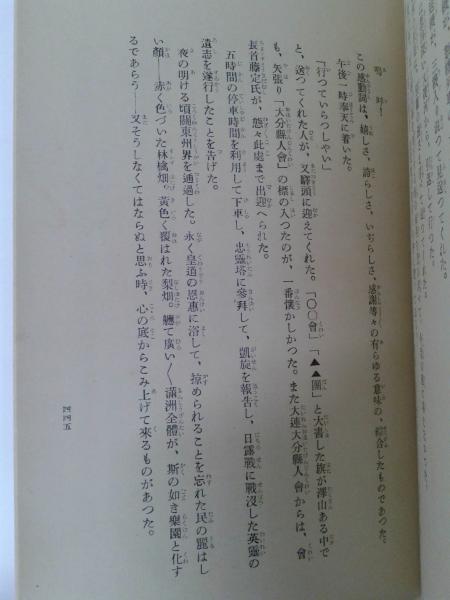 噫！
この感動詞は、嬉しさ、誇らしさ、いぢらしさ、感謝等々の有らゆる意味の、綜合したものであつた。
午後一時奉天に着いた。
「行つていらつしやい」
と、送つてくれた人が、又驛頭に迎えてくれた。「〇〇會」「▲▲團」と大書した旗が澤山ある中で
も、矢張り「大分縣人會」の標の入つたのが、一番懐かしかつた。また大連大分縣人會からは、會
長首藤定氏が、態々此處まで出迎へられた。
五時間の停車時間を利用して下車し、忠靈塔に參拜して、凱旋を報告し、日露戰に戰沒した英靈の
遺志を遂行したことを告げた。
夜の明ける頃關東州界を通過した。永く皇道の恩惠に浴して、掠められることを忘れた民の麗はし
い顏　赤く色づいた林檎畑。黃色く覆はれた梨畑。軈て廣い〱滿洲全體が、斯の如き樂園と化す
るであらう――又そうしなくてはならぬと思ふ時、心の底からこみ上げて來るものがあつた。
四四五